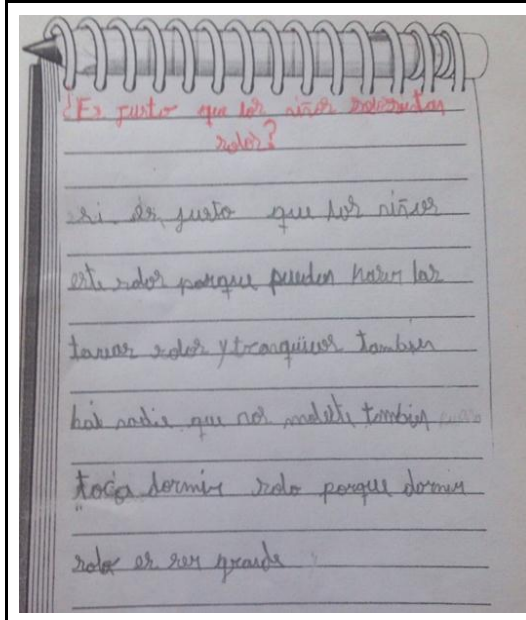 ¿Es justo que los niños
solos?
si es justo que los niños
este solos porque pueden haser las
tareas solos y tranquilos tambien
nadie que nos moleste tambien
toca dormir solo porque dormir
solo es ser grande